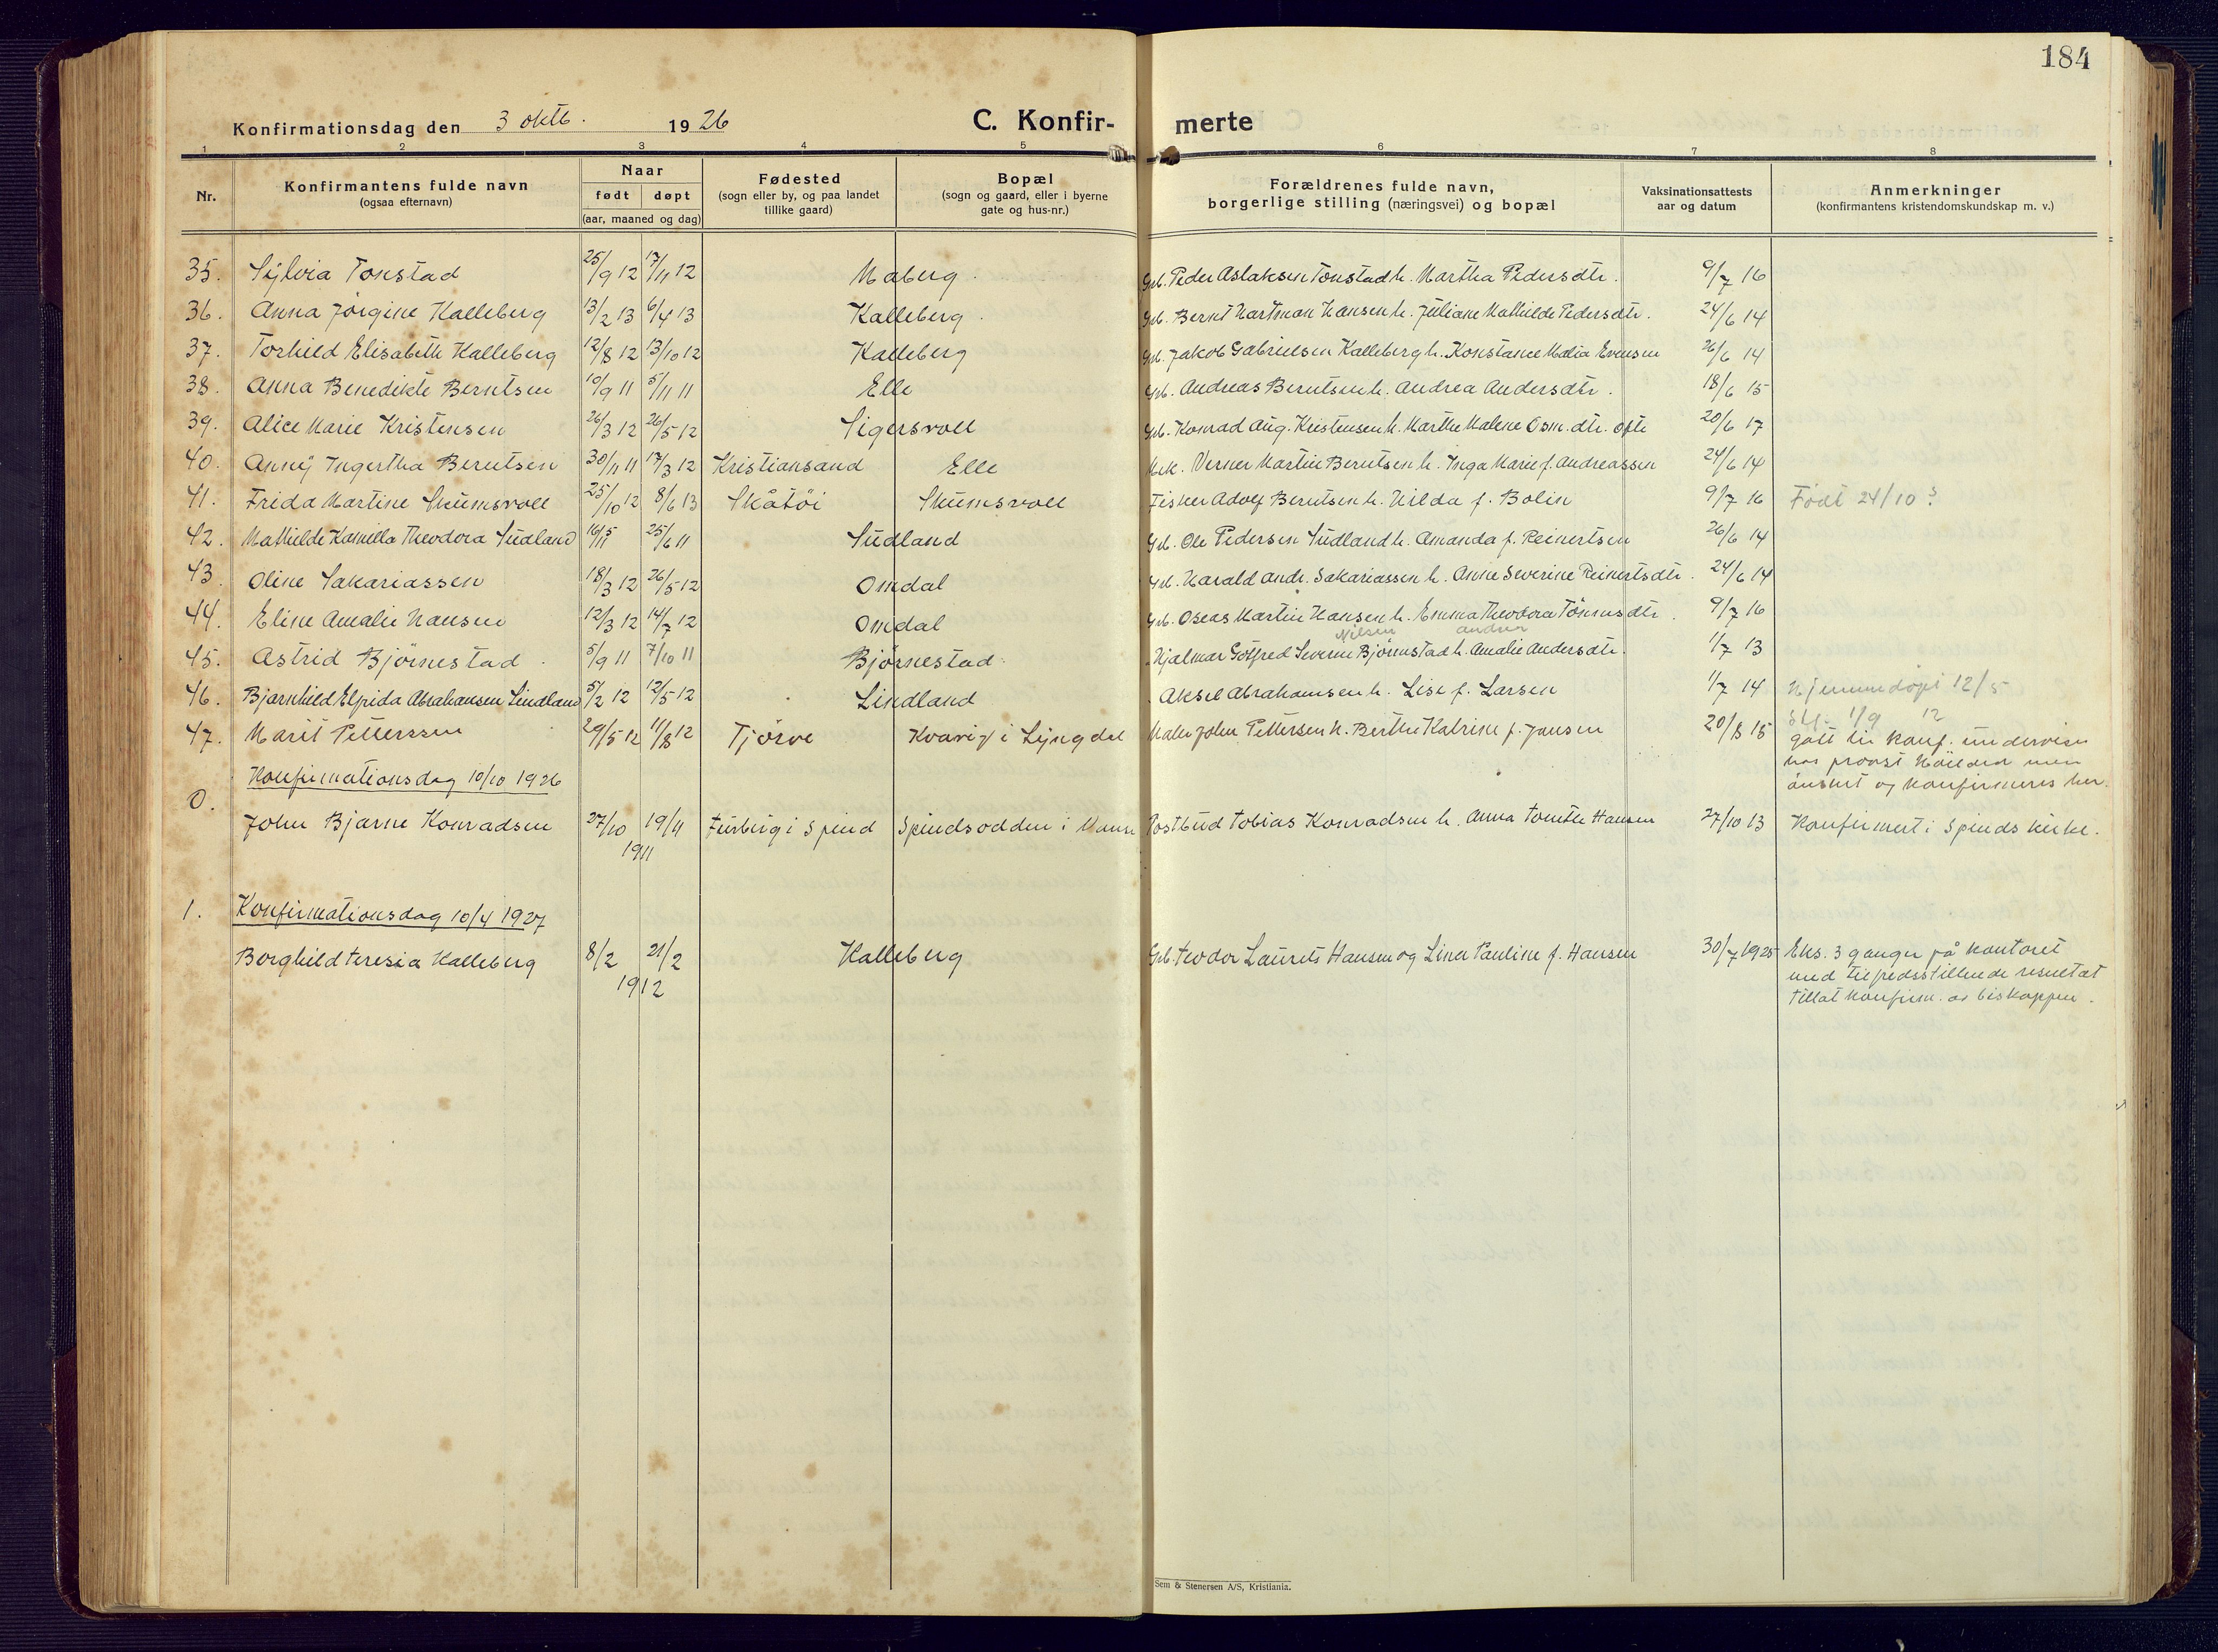 184
Konfirmationsdag den 3 oktb. 1926 C. Konfir- merte
1 2 3 4 5 6 7 8
Nr. Konfirmantens fulde navn (ogsaa efternavn) Naar født døpt (aar, maaned og dag) Fødested (sogn eller by, og paa landet tillike gaard) Bopæl (sogn og gaard, eller i byerne gate og hus-nr.) Forældrenes fulde navn, borgerlige stilling (næringsvei) og bopæl Vaksinationsattests aar og datum Anmerkninger (konfirmantens kristendomskundskap m. v.)
35. Sylvia Tonstad 25/9 12 17/11 12 Maberg. Gb. Peder Aslaksen Tonstad h. Martha Pedersdtr. 9/7 16
36. Anna Jörgine Kalleberg 13/2 13 6/4 13 Kalleberg. Gb. Bernt Hartman Hansen h. Juliane Mathilde Pedersdtr. 24/6 14
37. Torhild Elisabeth Kalleberg 12/8 12 13/10 12 Kalleberg Gb. Jakob Gabrielsen Kalleberg h. Konstance Malia Evensen 26/6 14
38. Anna Benedikte Berntsen 10/9 11 5/11 11 Elle Gb. Andreas Berntsen h. Andrea Andersdtr. 18/6 15
39. Alice Marie Kristensen 26/3 12 26/5 12 Sigersvoll Gb. Konrad Aug. Kristensen h. Marthe Malene Osm. dtr. Ofte 20/6 17
40. Anny Ingertha Berntsen 30/11 11 17/3 12 Kristiansand Elle Mek. Verner Martin Berntsen h. Inga Marie f. Andreassen 24/6 14
41. Frida Martine Skumsvoll 25/10 12 8/6 13 Skåtöi Skumsvoll Fisker Adolf Berntsen h. Hilda f. Bolin 9/7 16 Född 24/10?
42. Mathilde Kamilla Theodora Sudland 16/5 11 25/6 11 Sudland Gb. Ole Pedersen Sudland h. Amanda f. Reinertsen 26/6 14
43. Oline Sakariassen 18/3 12 26/5 12 Omdal Gb. Harald Andr. Sakariassen h. Anne Severine Reinertsdtr. 24/6 14
44. Eline Amalie Hansen 12/3 12 14/7 12 Omdal Gb. Oseas Martin Hansen h. Emma Theodora Tönnesdtr. 9/7 16
Nilsen
45. Astrid Björnestad. 5/9 11 7/10 11 Björnestad. Hjalmar Gotfred Severin Björnestad h. Amalie Andersdtr. 1/7 13
46. Bjarnhild Elfrida Abrahamsen Lindland 5/2 12 12/5 12 Lindland Aksel Abrahamsen h. Lise f. Larsen 1/7 14 Hjemmedöpt 12/5
1/9 12
47. Marit Pettersen 29/5 12 11/8 12 Tjörve Kvavig i Lyngdal Maler John Pettersen h. Berthe Katrine f. Jansen 20/8 15 gått til konf. undervisn
hos provst men
önsket og konfirmeres her.
Konfirmationsdag 10/10 1926
0.
John Bjarne Konradsen 27/10 19/11 1911 i Spind Spindsodden i Postbud Tobias Konradsen h. Anna Tomette Hansen 27/10 13 Konfirmert i Spinds kirke.
1. Konfirmationsdag 10/4 1927
Borghild Teresia Kalleberg 8/2 21/2 1912 Kalleberg Gb. Teodor Laurits Hansen og Lina Pauline f. Hansen 30/7 1925 Eks. 3 ganger på kontoret
med tilfredsstillende resultat
Tillat konfirm. av biskoppen.
Sem & Stenersen A/S, Kristiania.